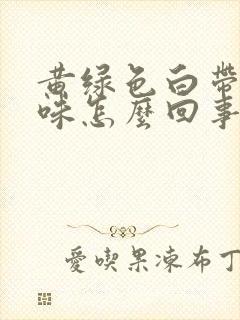 黄绿色白带
味怎麼回事
愛喫果凍布丁